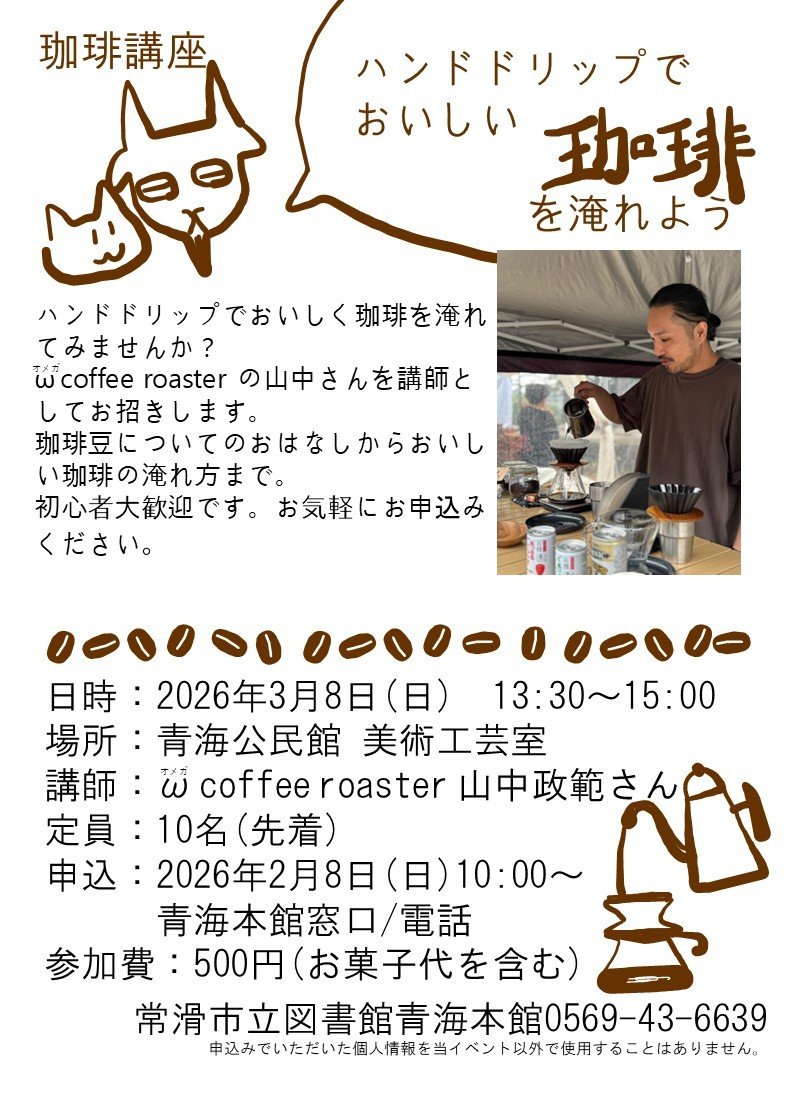 珈琲講座
ハンドドリップで
おいしい 珈琲
を淹れよう
ハンドドリップでおいしく珈琲を淹れ
てみませんか？
オメガ
ωcoffee roaster の山中さんを講師と
してお招きします。
珈琲豆についてのおはなしからおいし
い珈琲の淹れ方まで。
初心者大歓迎です。お気軽にお申込み
ください。
日時：2026年3月8日(日) 13:30～15:00
場所：青海公民館 美術工芸室
オメガ
講師：ω coffee roaster 山中政範さん
定員：10名(先着)
申込：2026年2月8日(日)10:00～
青海本館窓口/電話
参加費：500円(お菓子代を含む)
常滑市立図書館青海本館0569-43-6639
申込みでいただいた個人情報を当イベント以外で使用することはありません。